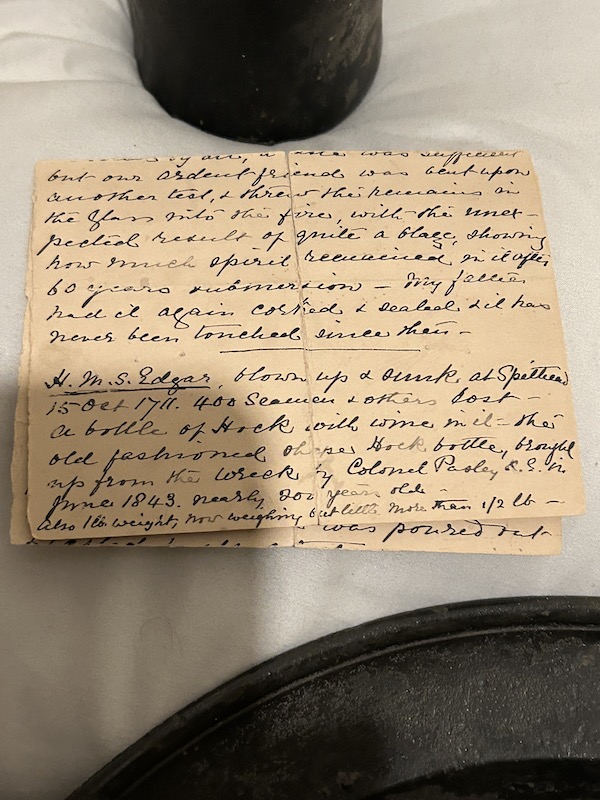 by all, a was sufficient
but our ardent friend was bent upon
another test, & threw the remains in
the glass into the fire, with the unex-
pected result of quite a blaze, showing
how much spirit remained in it after
60 years submersion — My father
had it again corked & sealed & it has
never been touched since then —
H.M.S. Edgar, blown up & sunk at Spithead
15 Oct 1711. 400 Seamen & others lost —
a bottle of Hock with wine in it — the
old fashioned shape Hock bottle, brought
up from the wreck by Colonel Pasley R.E. in
June 1843. nearly 200 years old —
also 1 lb. weight, now weighing but little more than 1/2 lb —
was poured out